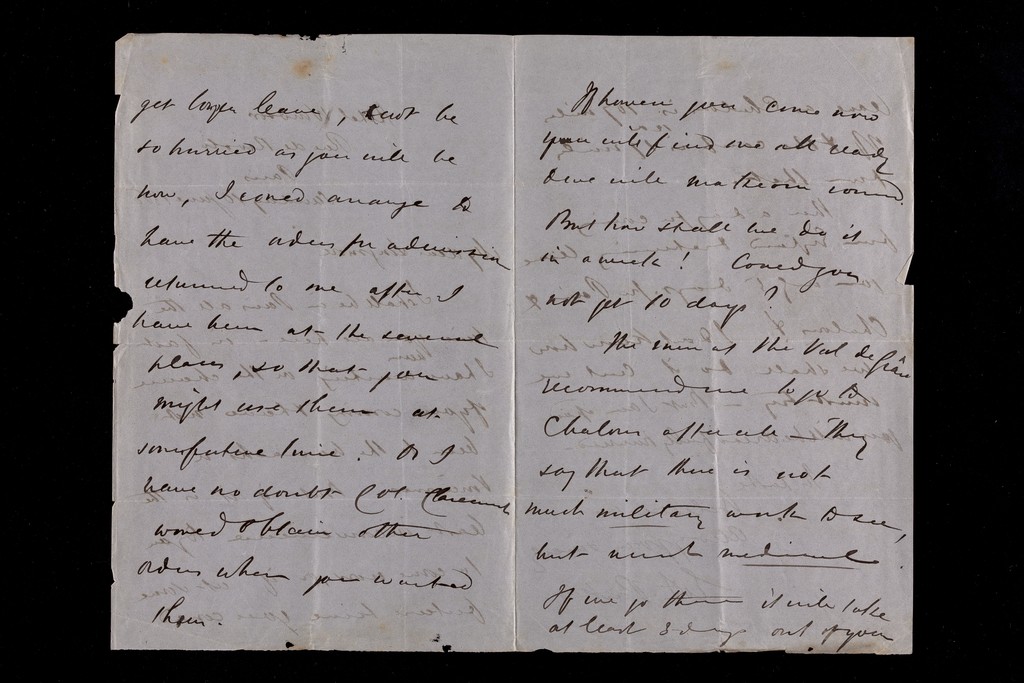 get longer leave, & not be
so hurried as you will be
now, I could arrange to
have the orders for admission
returned to me after I
have been at the several
places, so that you
might use them at
some future time. Or I
have no doubt Col. Claremont
would obtain other
orders when you wanted
them.
If however you come now
you will find me all ready
& we will make our round.
But how shall we do it
in a week! Could you
not get 10 days?
The men at the Val de Grâce
recommend me to go to
Chalons after all — They
say that there is not
much military work to see,
but much medical
If we go there it will take
at least 3 days out of your